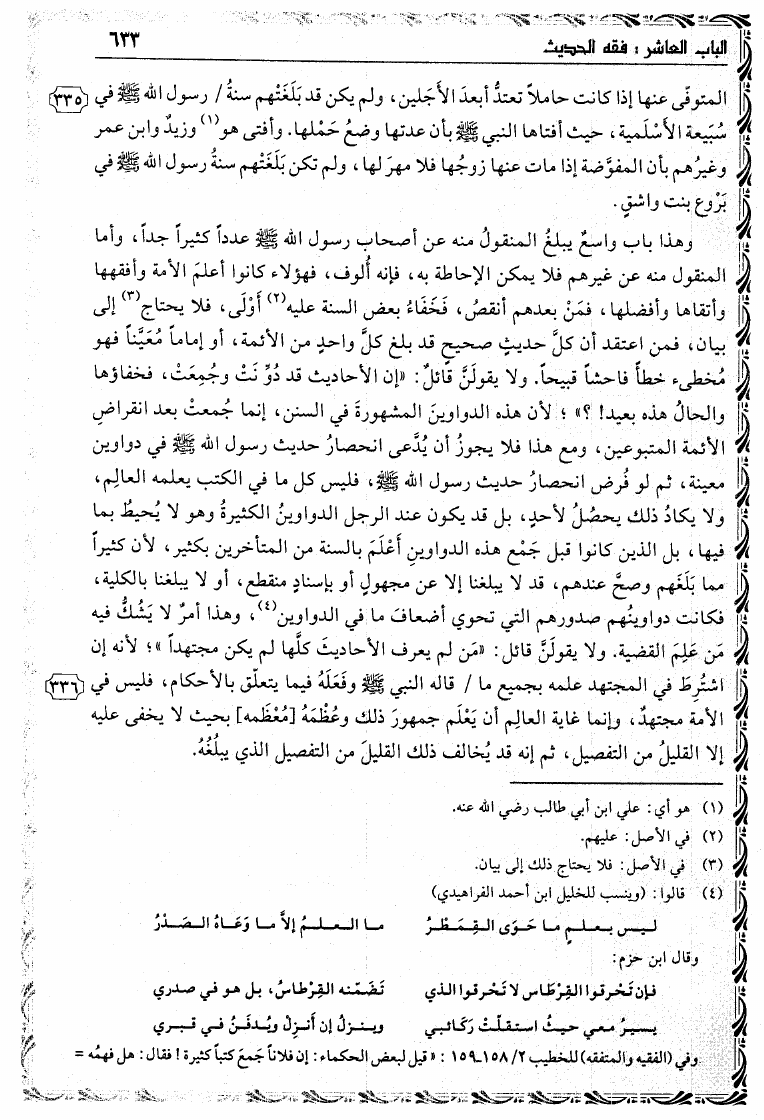 الباب العاشر : فقه الحديث ٦٣٣
المتوفّى عنها إذا كانت حاملاً تعتدُّ أبعدَ الأجَلين، ولم يكن قد بَلَغَتْهم سنةُ / رسول الله ﷺ في ٣٣٥
سُبَيعة الأسْلَمية، حيث أفتاها النبي ﷺ بأن عدتها وضعُ حَمْلها. وأفتى هو(١) وزيدٌ وابن عمر
وغيرُهم بأن المفوَّضة إذا مات عنها زوجُها فلا مهرَ لها، ولم تكن بَلَغَتْهم سنةُ رسول الله ﷺ في
بَرْوع بنت واشقٍ.
وهذا باب واسعٌ يبلغُ المنقولُ منه عن أصحاب رسول الله ﷺ عدداً كثيراً جداً، وأما
المنقول منه عن غيرهم فلا يمكن الإحاطة به، فإنه أُلوف، فهؤلاء كانوا أعلمَ الأمة وأفقهها
وأتقاها وأفضلها، فمَنْ بعدهم أنقصُ، فخَفَاءُ بعض السنة عليه(٢) أَوْلَى، فلا يحتاج(٣) إلى
بيان، فمن اعتقد أن كلَّ حديثٍ صحيح قد بلغ كلَّ واحدٍ من الأئمة، أو إماماً مُعَيَّناً فهو
مُخطىء خطأً فاحشاً قبيحاً. ولا يقولَنَّ قائلٌ: «إن الأحاديث قد دُوِّ نَتْ وجُمِعَتْ، فخفاؤها
والحالُ هذه بعيد! ؟» ؛ لأن هذه الدواوينَ المشهورةَ في السنن، إنما جُمعتْ بعد انقراضِ
الأئمة المتبوعين، ومع هذا فلا يجوزُ أن يُدَّعى انحصارُ حديث رسول الله ﷺ في دواوين
معينة، ثم لو فُرض انحصارُ حديث رسول الله ﷺ، فليس كل ما في الكتب يعلمه العالِم،
ولا يكادُ ذلك يحصُلُ لأحدٍ، بل قد يكون عند الرجل الدواوينُ الكثيرةُ وهو لا يُحيطُ بما
فيها، بل الذين كانوا قبل جَمْع هذه الدواوينِ أعْلَمَ بالسنة من المتأخرين بكثير، لأن كثيراً
مما بَلَغَهم وصحَّ عندهم، قد لا يبلغنا إلا عن مجهولٍ أو بإسنادٍ منقطع، أو لا يبلغنا بالكلية،
فكانت دواوينُهم صدورهم التي تحوي أضعافَ ما في الدواوين(٤)، وهذا أمرٌ لا يَشُكُّ فيه
مَن عَلِمَ القضية. ولا يقولَنَّ قائل: «مَن لم يعرف الأحاديثَ كلَّها لم يكن مجتهداً »؛ لأنه إن
اشتُرِطَ في المجتهد علمه بجميع ما / قاله النبي ﷺ وفَعَلَهُ فيما يتعلّق بالأحكام، فليس في ٣٣٦
الأمة مجتهدٌ، وإنما غاية العالِم أن يَعْلَم جمهورَ ذلك وعُظْمَهُ [مُعْظَمه] بحيث لا يخفى عليه
إلا القليلُ من التفصيل، ثم إنه قد يُخالف ذلك القليلَ من التفصيل الذي يبلُغُهُ.
(١) هو أي: علي ابن أبي طالب رضي الله عنه.
(٢) في الأصل: عليهم.
(٣) في الأصل: فلا يحتاج ذلك إلى بيان.
(٤) قالوا: (وينسب للخليل ابن أحمد الفراهيدي)
ليـس بـعـلـمٍ مـا حَـوَى الـقِـمَـطْـرُ مـا الـعـلـمُ إلاَّ مـا وَعَـاهُ الـصَـدْرُ
وقال ابن حزم:
فـإن تَـحْرقـوا القِـرْطَاس لا تَـحْرقوا الذي تَضَمّنه القِـرْطاسُ، بل هو في صدري
يسيـرُ معي حيثُ استقلّتْ رَكَائبي ويـنـزلُ إن أنـزِلْ ويُـدفَـنُ فـي قـبـري
وفي (الفقيه والمتفقه) للخطيب ٢/ ١٥٨ـ١٥٩ : « قيل لبعض الحكماء: إن فلاناً جَمعَ كتباً كثيرة! فقال: هل فهمُه =